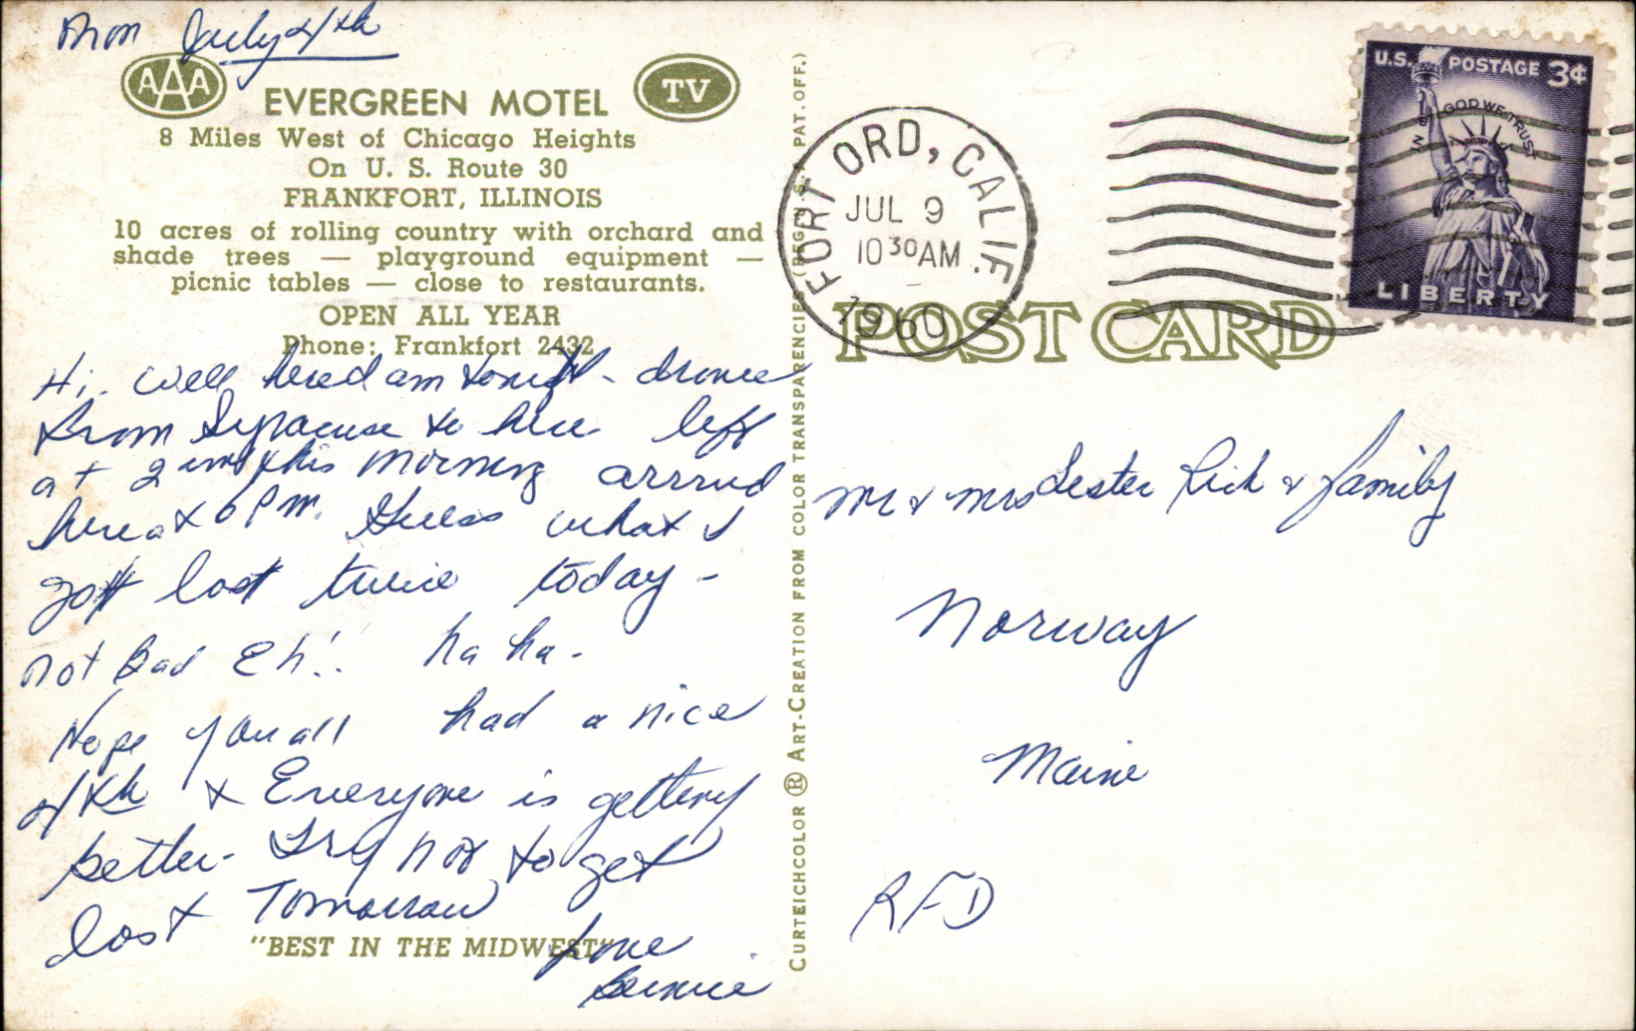 Mon July 4th
AAA
EVERGREEN MOTEL
TV
8 Miles West of Chicago Heights
On U. S. Route 30
FRANKFORT, ILLINOIS
10 acres of rolling country with orchard and
shade trees — playground equipment —
picnic tables — close to restaurants.
OPEN ALL YEAR
Phone: Frankfort 2432
Hi. Well, here I am tonight - drove
from Syracuse to here left
at 2 this morning arrived
here at 6 PM. Guess what I
got lost twice today -
not Bad Eh!. ha ha -
Hope you all had a nice
4th & Everyone is getting
better. Try not to get
lost Tomorrow
"BEST IN THE MIDWEST"
Love
Bernie
CURTEICHCOLOR ® ART-CREATION FROM COLOR TRANSPARENCIES (REG'D U.S. PAT. OFF.)
FORT ORD, CALIF.
JUL 9
10 30 AM
1960
U.S. POSTAGE 3¢
IN GOD WE TRUST
LIBERTY
POST CARD
Mr & Mrs Lester Rich & family
Norway
Maine
RFD